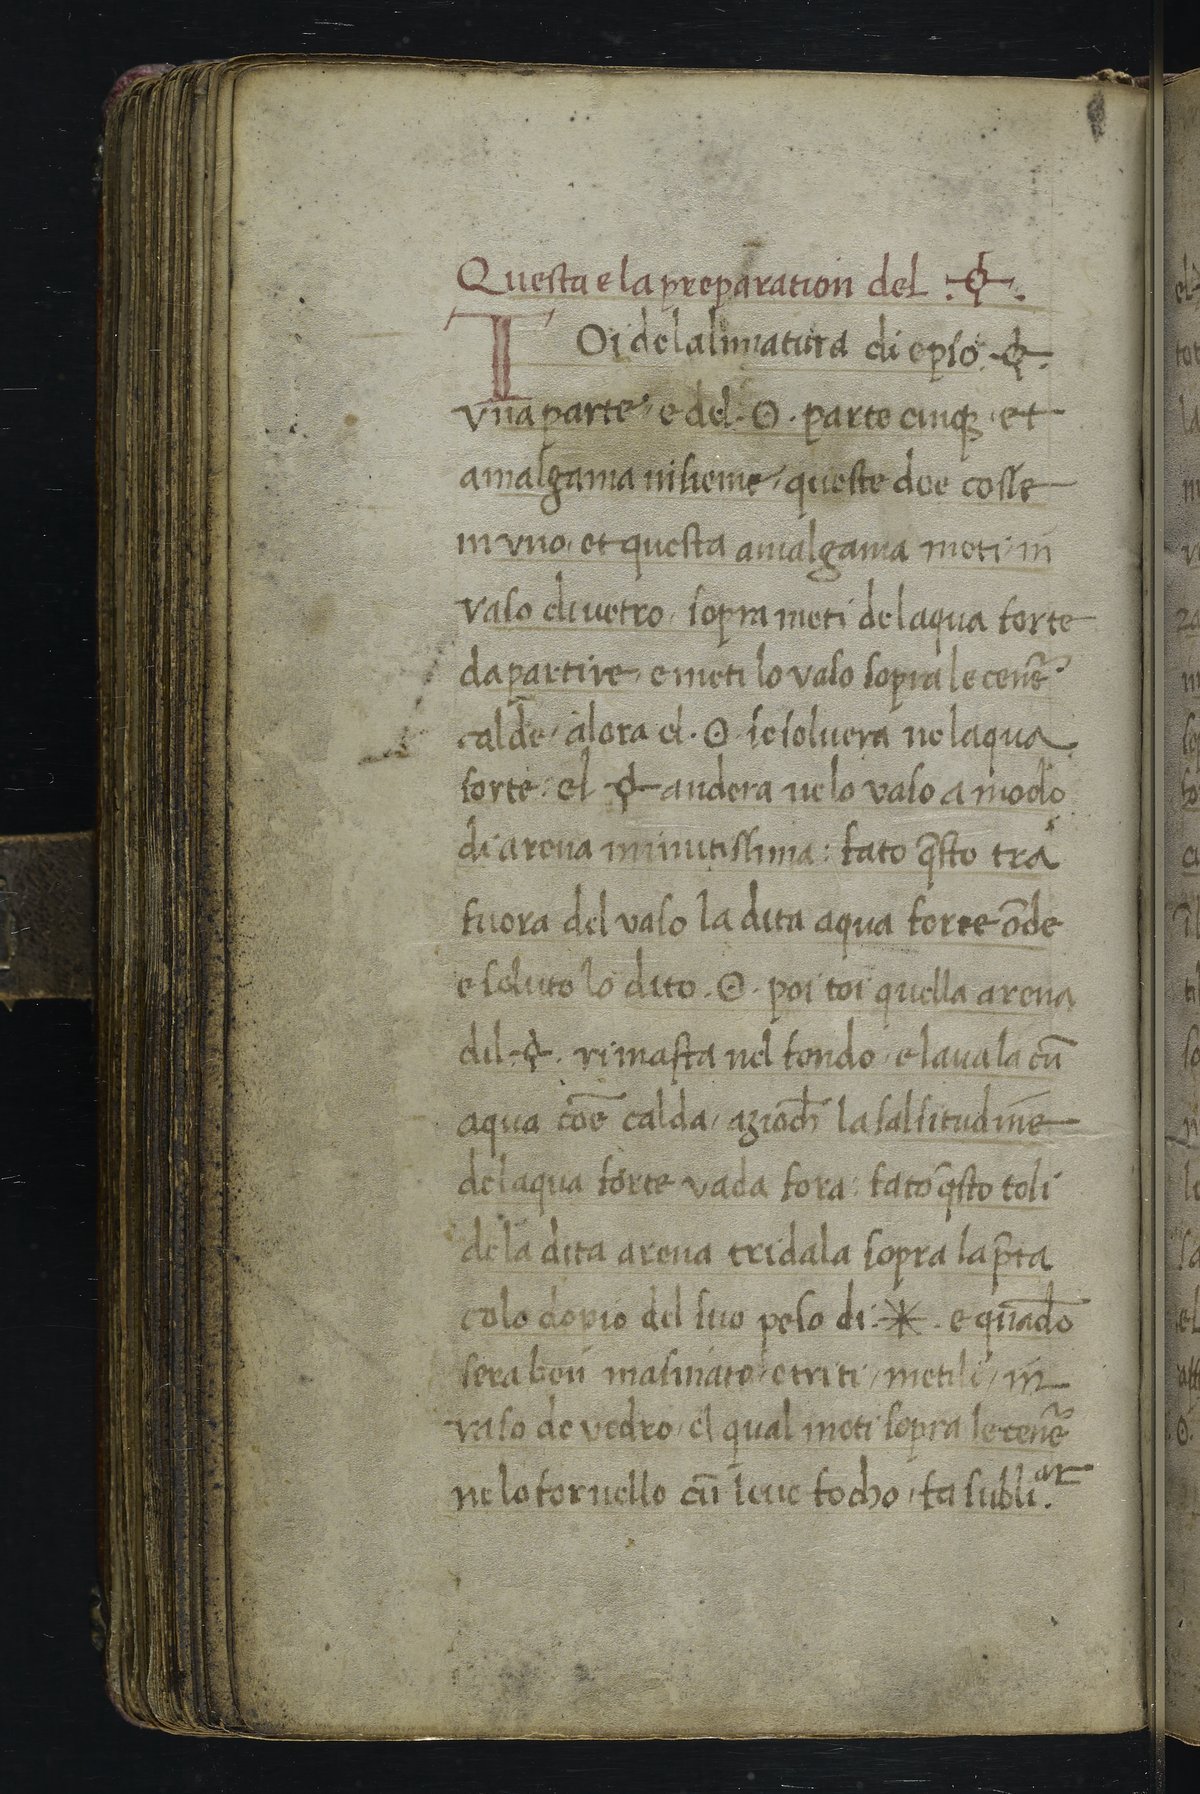 Questa e la preparation del .☿.
TOi de la limatura di epso .☿.
vna parte, e del .☉. parte cinqꝫ, et
amalgama insieme, queste doe cosse
in vno, et questa amalgama meti, in
vaso di vetro, sopra meti de laqua forte
da partire, e meti lo vaso sopra le ceneř
calde, alora el .☉. se soluera ne laqua
forte, el ☿ andera ne lo vaso a modo
di arena minutissima: fato q̄sto tra
fuora del vaso la dita aqua forte ōde
e soluto lo dito .☉. poi toi quella arena
del .☿. rimasta nel fondo, e laua la cū
aqua cōe calda, azioch̄ la salsitudine
de laqua forte vada fora: fato q̄sto toli
de la dita arena tridala sopra la p̄ta
colo dopio del suo peso di .✳. e quādo
sera ben masinato, e triti, metili, in
vaso de vedro, el qual meti sopra le ceneř
ne lo fornello cū leue focho, fa subliar.